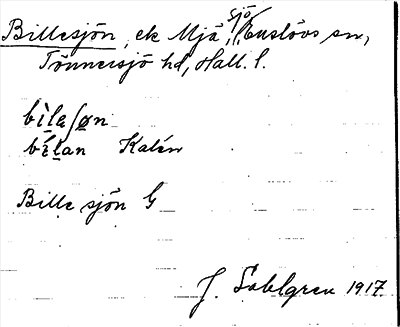 Billesjön, ek Mjä, sjö, Enslövs sn,
Tönnersjö hd, Hall. l.
bìlaʃøn
bílan Kalén
Bille sjön G
J. Sahlgren 1917.